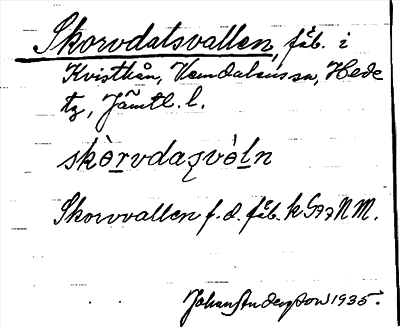 Skorvdatsvallen, fäb. i
Kvisthån, Vemdalens sn, Hede
tg, Jämtl. l.
skòrvdaʂvòln
Skorvvallen f. d. fäb. k G77 N M.
Johan Anderson 1935.